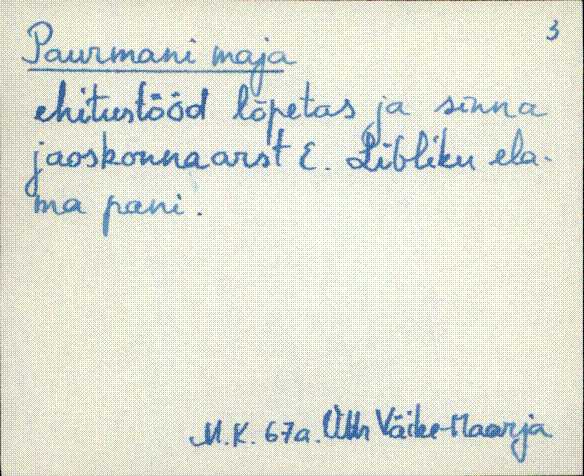 3
Paurmani maja
ehitustööd lõpetas ja sinna
jaoskonnaarst E. Libliku ela-
ma pani.
M.K. 67a. Väike-Maarja